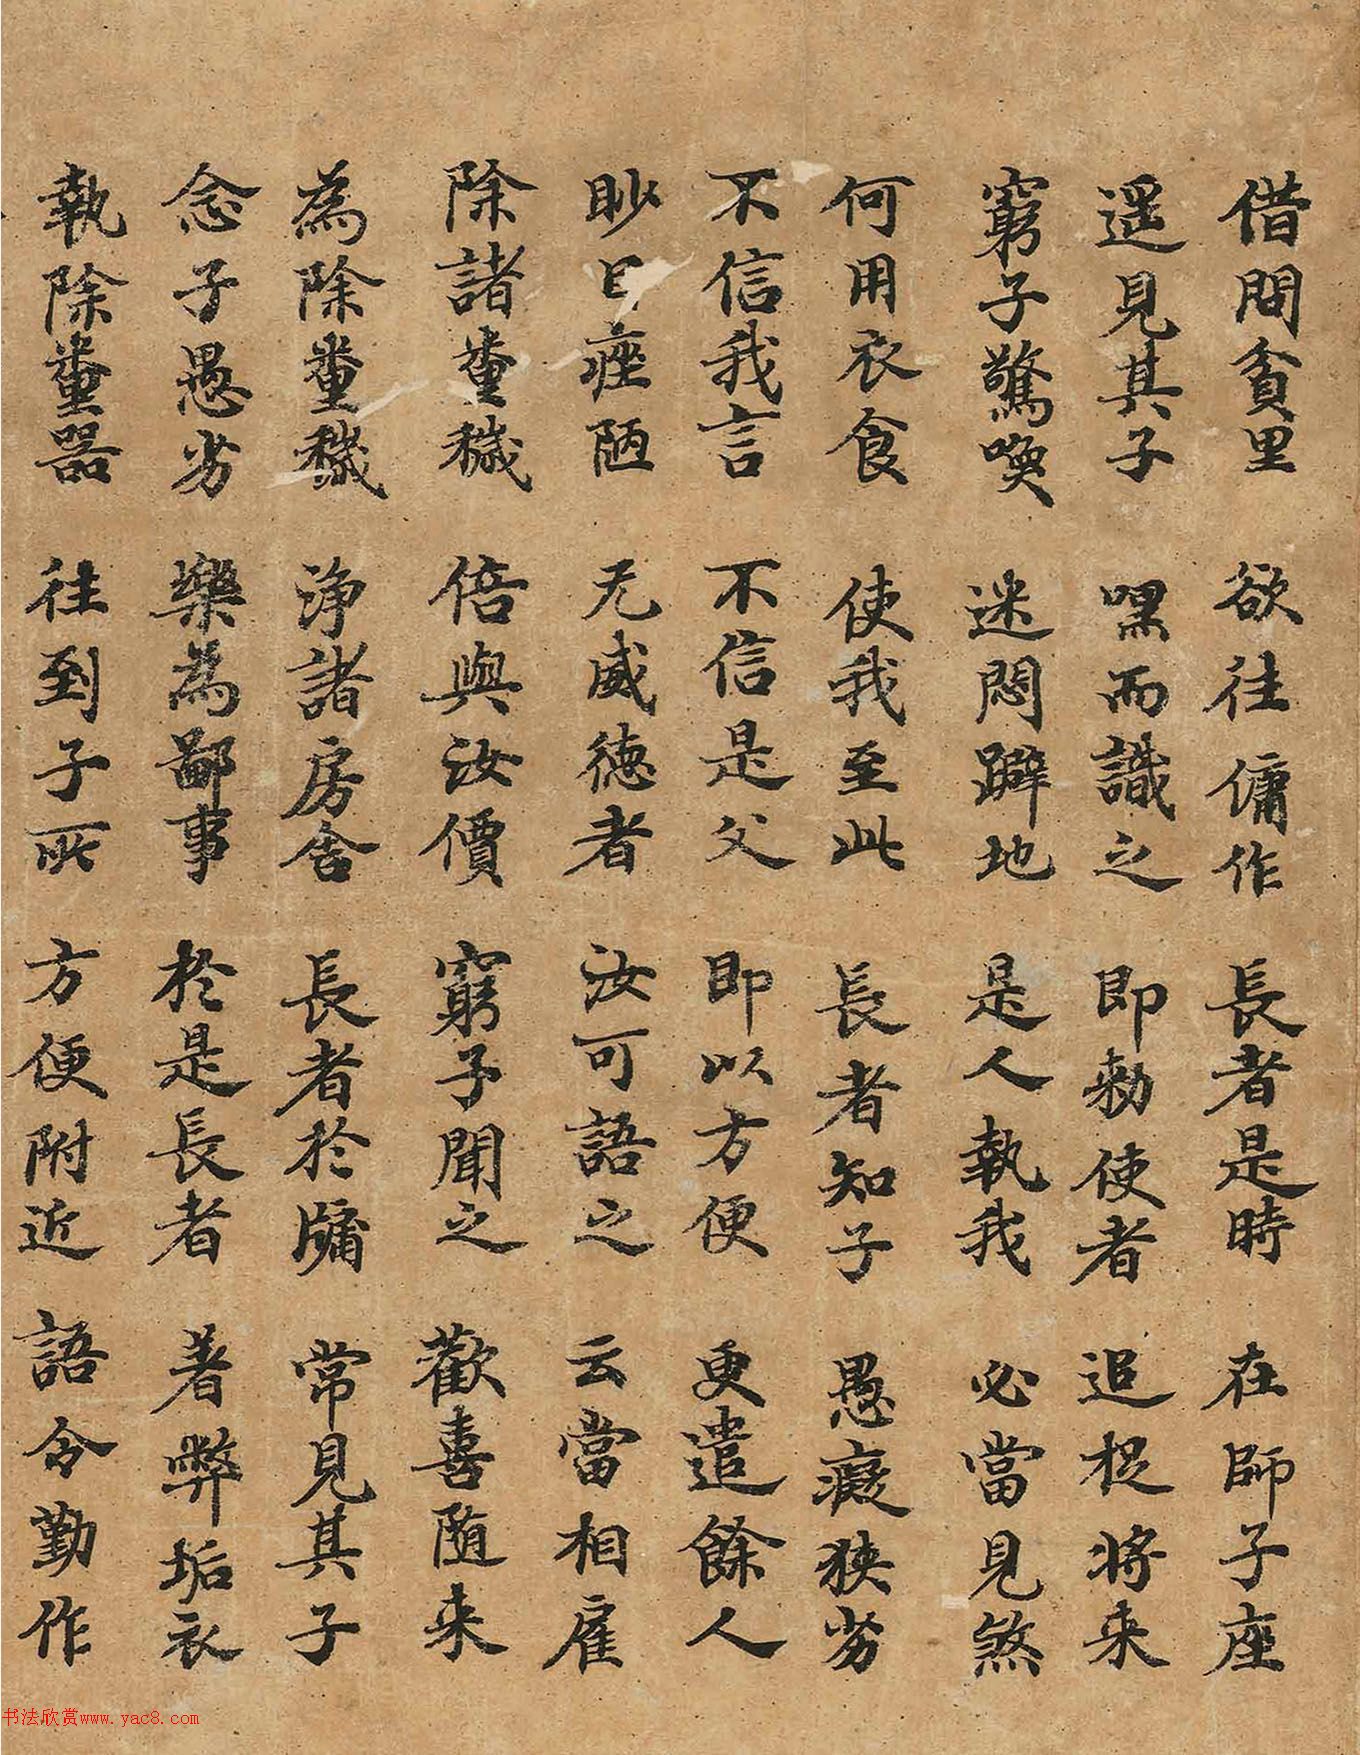 借問貧里 欲往傭作 長者是時 在師子座
遥見其子 嘿而識之 即勑使者 追捉將来
窮子驚喚 迷悶躃地 是人執我 必當見煞
何用衣食 使我至此 長者知子 愚癡狹劣
不信我言 不信是父 即以方便 更遣餘人
眇目痤陋 无威德者 汝可語之 云當相雇
除諸糞穢 倍與汝價 窮子聞之 歡喜随来
為除糞穢 淨諸房舍 長者於牖 常見其子
念子愚劣 樂為鄙事 於是長者 著弊垢衣
執除糞器 往到子所 方便附近 語令勤作
书法欣赏www.yac8.com